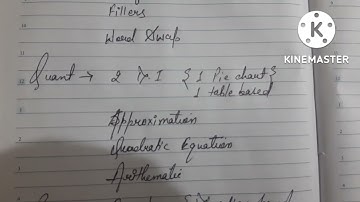 Fillers
Word Swap
KINEMASTER
Quant → 2 DI { 1 Pie chart }
1 table based
Approximation
Quadratic Equation
Arithematic